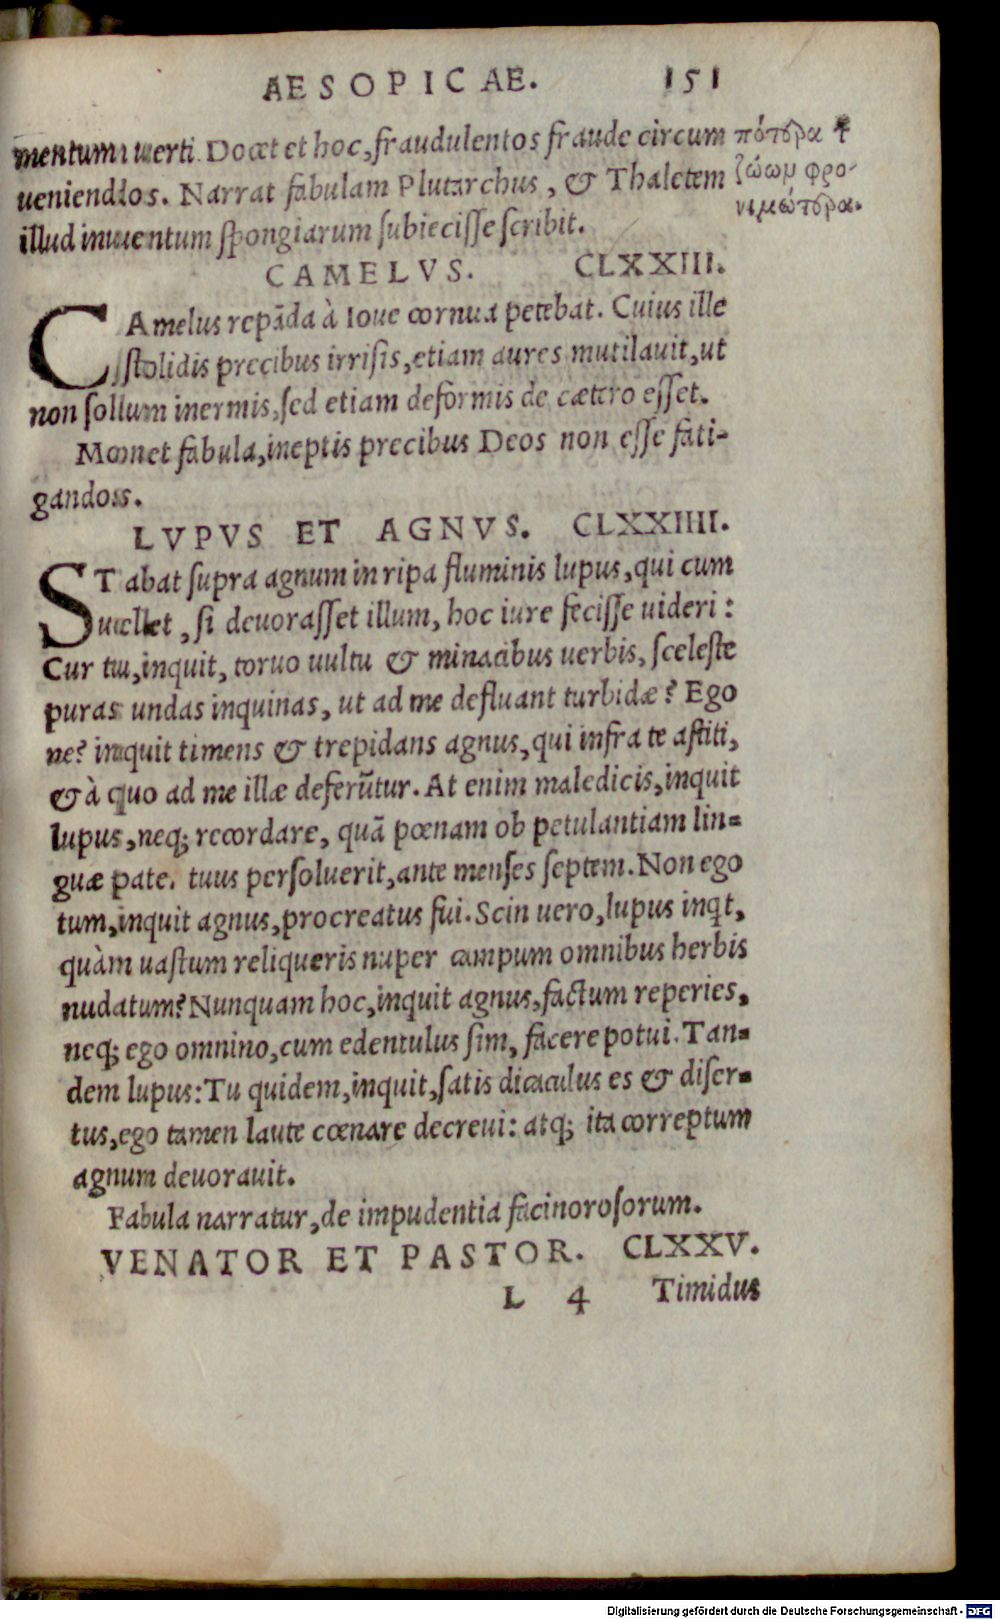 AESOPICAE. 151
mentum uerti. Docet et hoc, fraudulentos fraude circum
ueniendos. Narrat fabulam Plutarchus, & Thaletem
illud inuentum spongiarum subiecisse scribit.
πότερα τ̃
ζώωμ φρο-
νιμώτερα.
CAMELVS. CLXXIII.
CAmelus repāda à Ioue cornua petebat. Cuius ille
stolidis precibus irrisis, etiam aures mutilauit, ut
non sollum inermis, sed etiam deformis de cætero esset.
Monet fabula, ineptis precibus Deos non esse fati-
gandos.
LVPVS ET AGNVS. CLXXIIII.
STabat supra agnum in ripa fluminis lupus, qui cum
uellet, si deuorasset illum, hoc iure fecisse uideri:
Cur tu, inquit, toruo uultu & minacibus uerbis, sceleste
puras undas inquinas, ut ad me defluant turbidæ? Ego
ne? inquit timens & trepidans agnus, qui infra te astiti,
& à quo ad me illæ deferūtur. At enim maledicis, inquit
lupus, neq; recordare, quā pœnam ob petulantiam lin-
guæ pate. tuus persoluerit, ante menses septem. Non ego
tum, inquit agnus, procreatus fui. Scin uero, lupus inq̇t,
quàm uastum reliqueris nuper campum omnibus herbis
nudatum? Nunquam hoc, inquit agnus, factum reperies,
neq; ego omnino, cum edentulus sim, facere potui. Tan-
dem lupus: Tu quidem, inquit, satis dicaculus es & diser-
tus, ego tamen laute cœnare decreui: atq; ita correptum
agnum deuorauit.
Fabula narratur, de impudentia facinorosorum.
VENATOR ET PASTOR. CLXXV.
L 4 Timidus
Digitalisierung gefördert durch die Deutsche Forschungsgemeinschaft - DFG